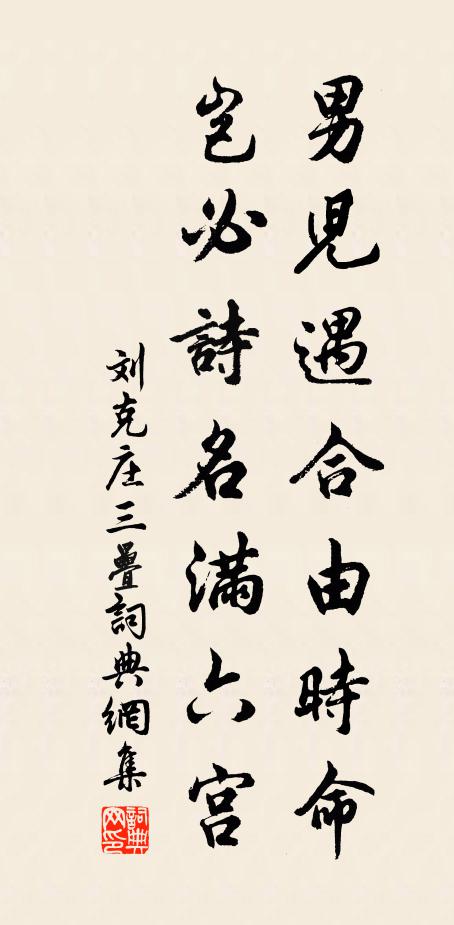 男児遇合由時命
豈必詩名滿六宮
刘克庄三疊詞典網集
詞典网印